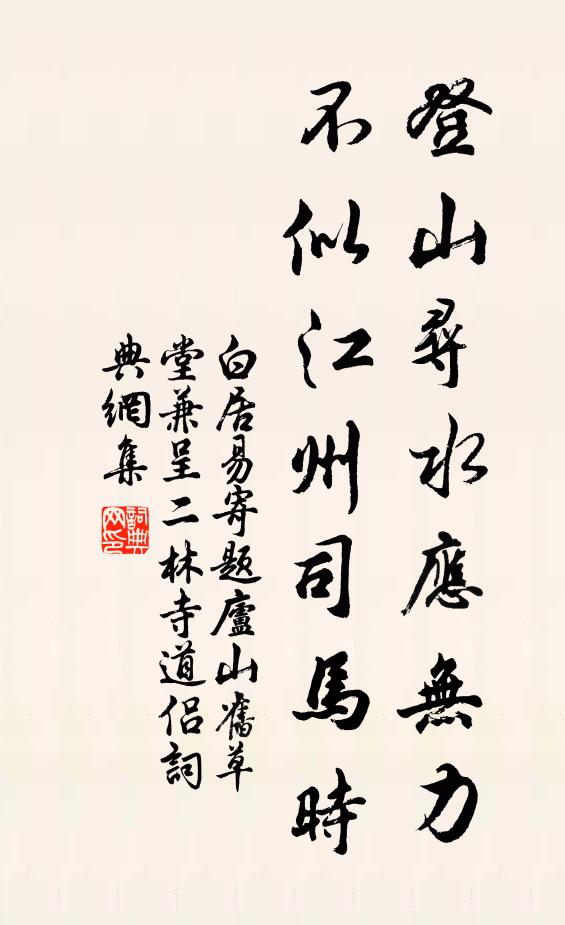 登山尋水應無力
不似江州司馬時
白居易寄題廬山舊草
堂兼呈二林寺道侶詞
典網集
詞典
网印